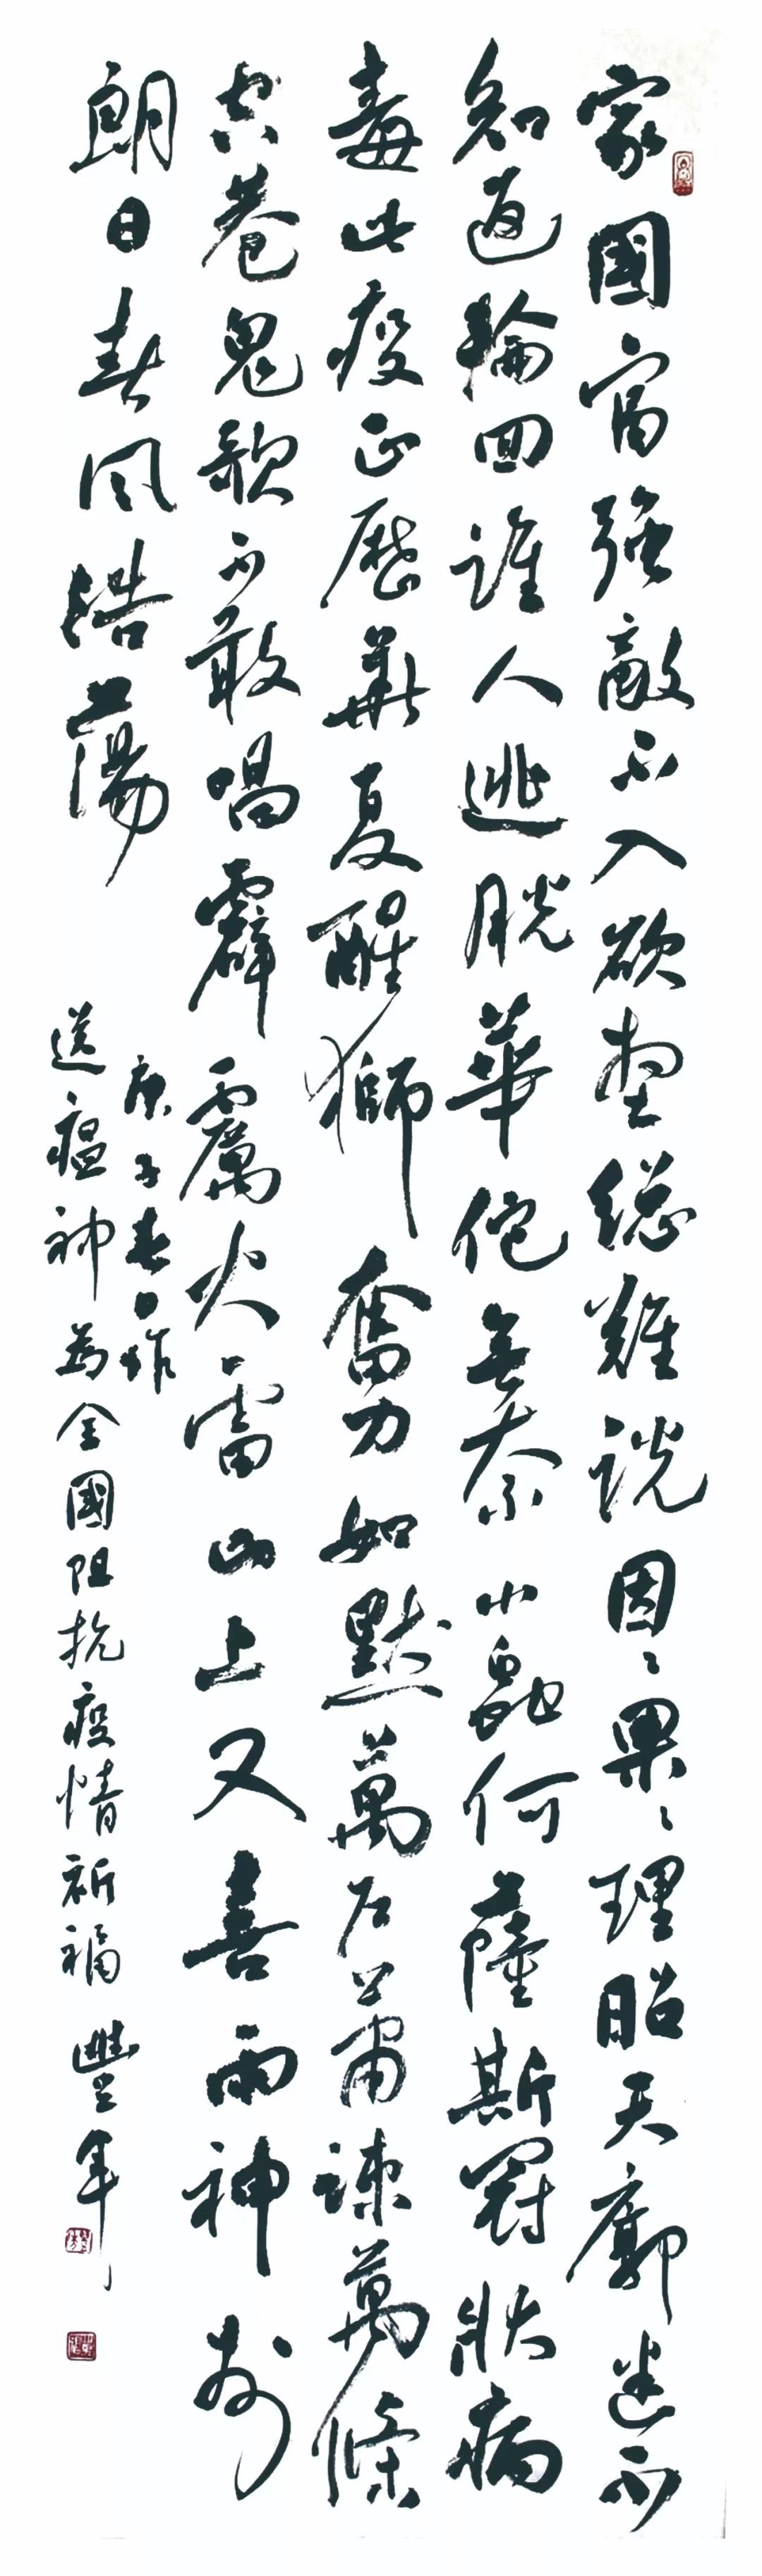 家國富強敵不入欲總難說因〻果〻理昭天廓迷不
知返輪回誰人逃脫華佗無奈小蟲何薩斯冠狀病
毒此疫正歷華夏醒獅奮力如默萬蕭疎萬條
空巷鬼歌不敢唱霹靂火雷山上又喜雨神州
朗日春風浩蕩
庚子春日作
送瘟神為全國阻抗疫情祈福 豐年